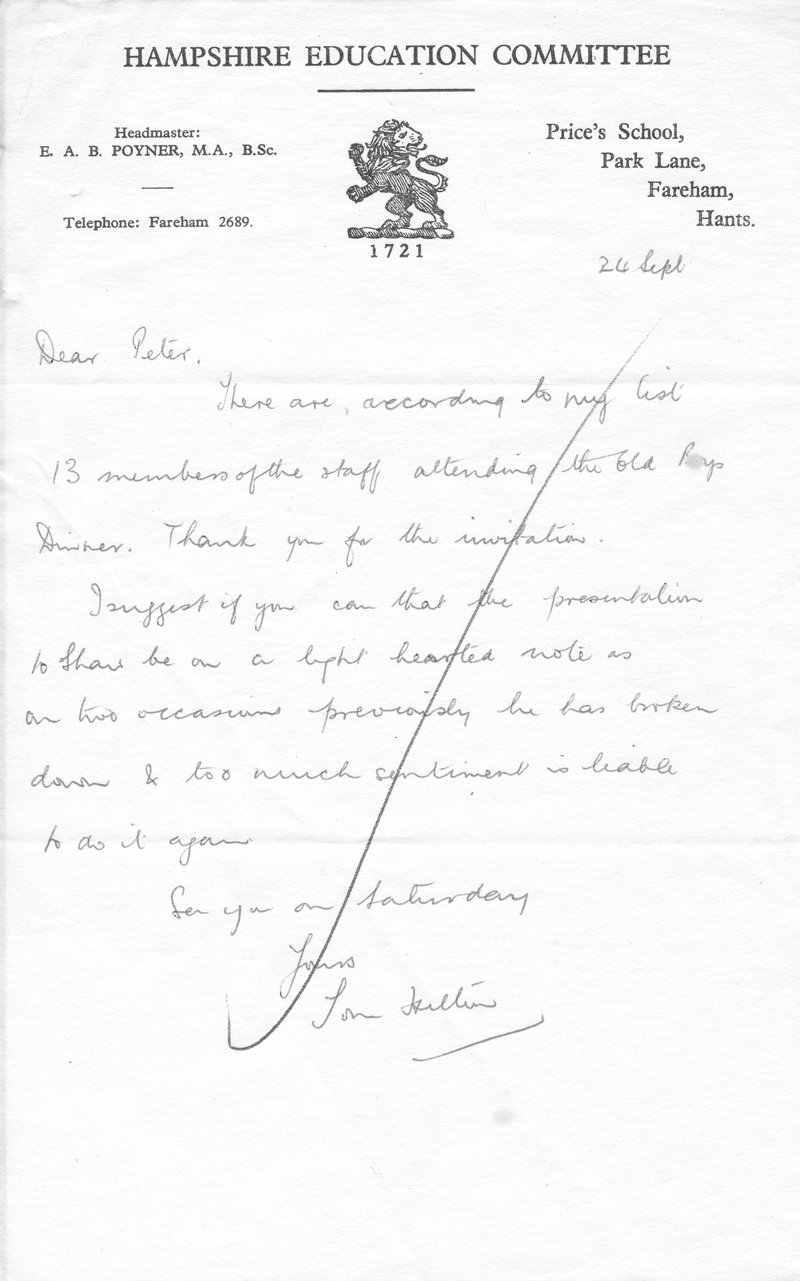 HAMPSHIRE EDUCATION COMMITTEE
Headmaster:
E. A. B. POYNER, M.A., B.Sc.
Telephone: Fareham 2689.
1721
Price's School,
Park Lane,
Fareham,
Hants.
24 Sept
Dear Peter,
There are, according to my list
13 members of the staff attending the Old Boys
Dinner. Thank you for the invitation.
I suggest if you can that the presentation
to Shaw be on a light hearted note as
on two occasions previously he has broken
down & too much sentiment is liable
to do it again
See you on Saturday
Yours
Tom Hilton